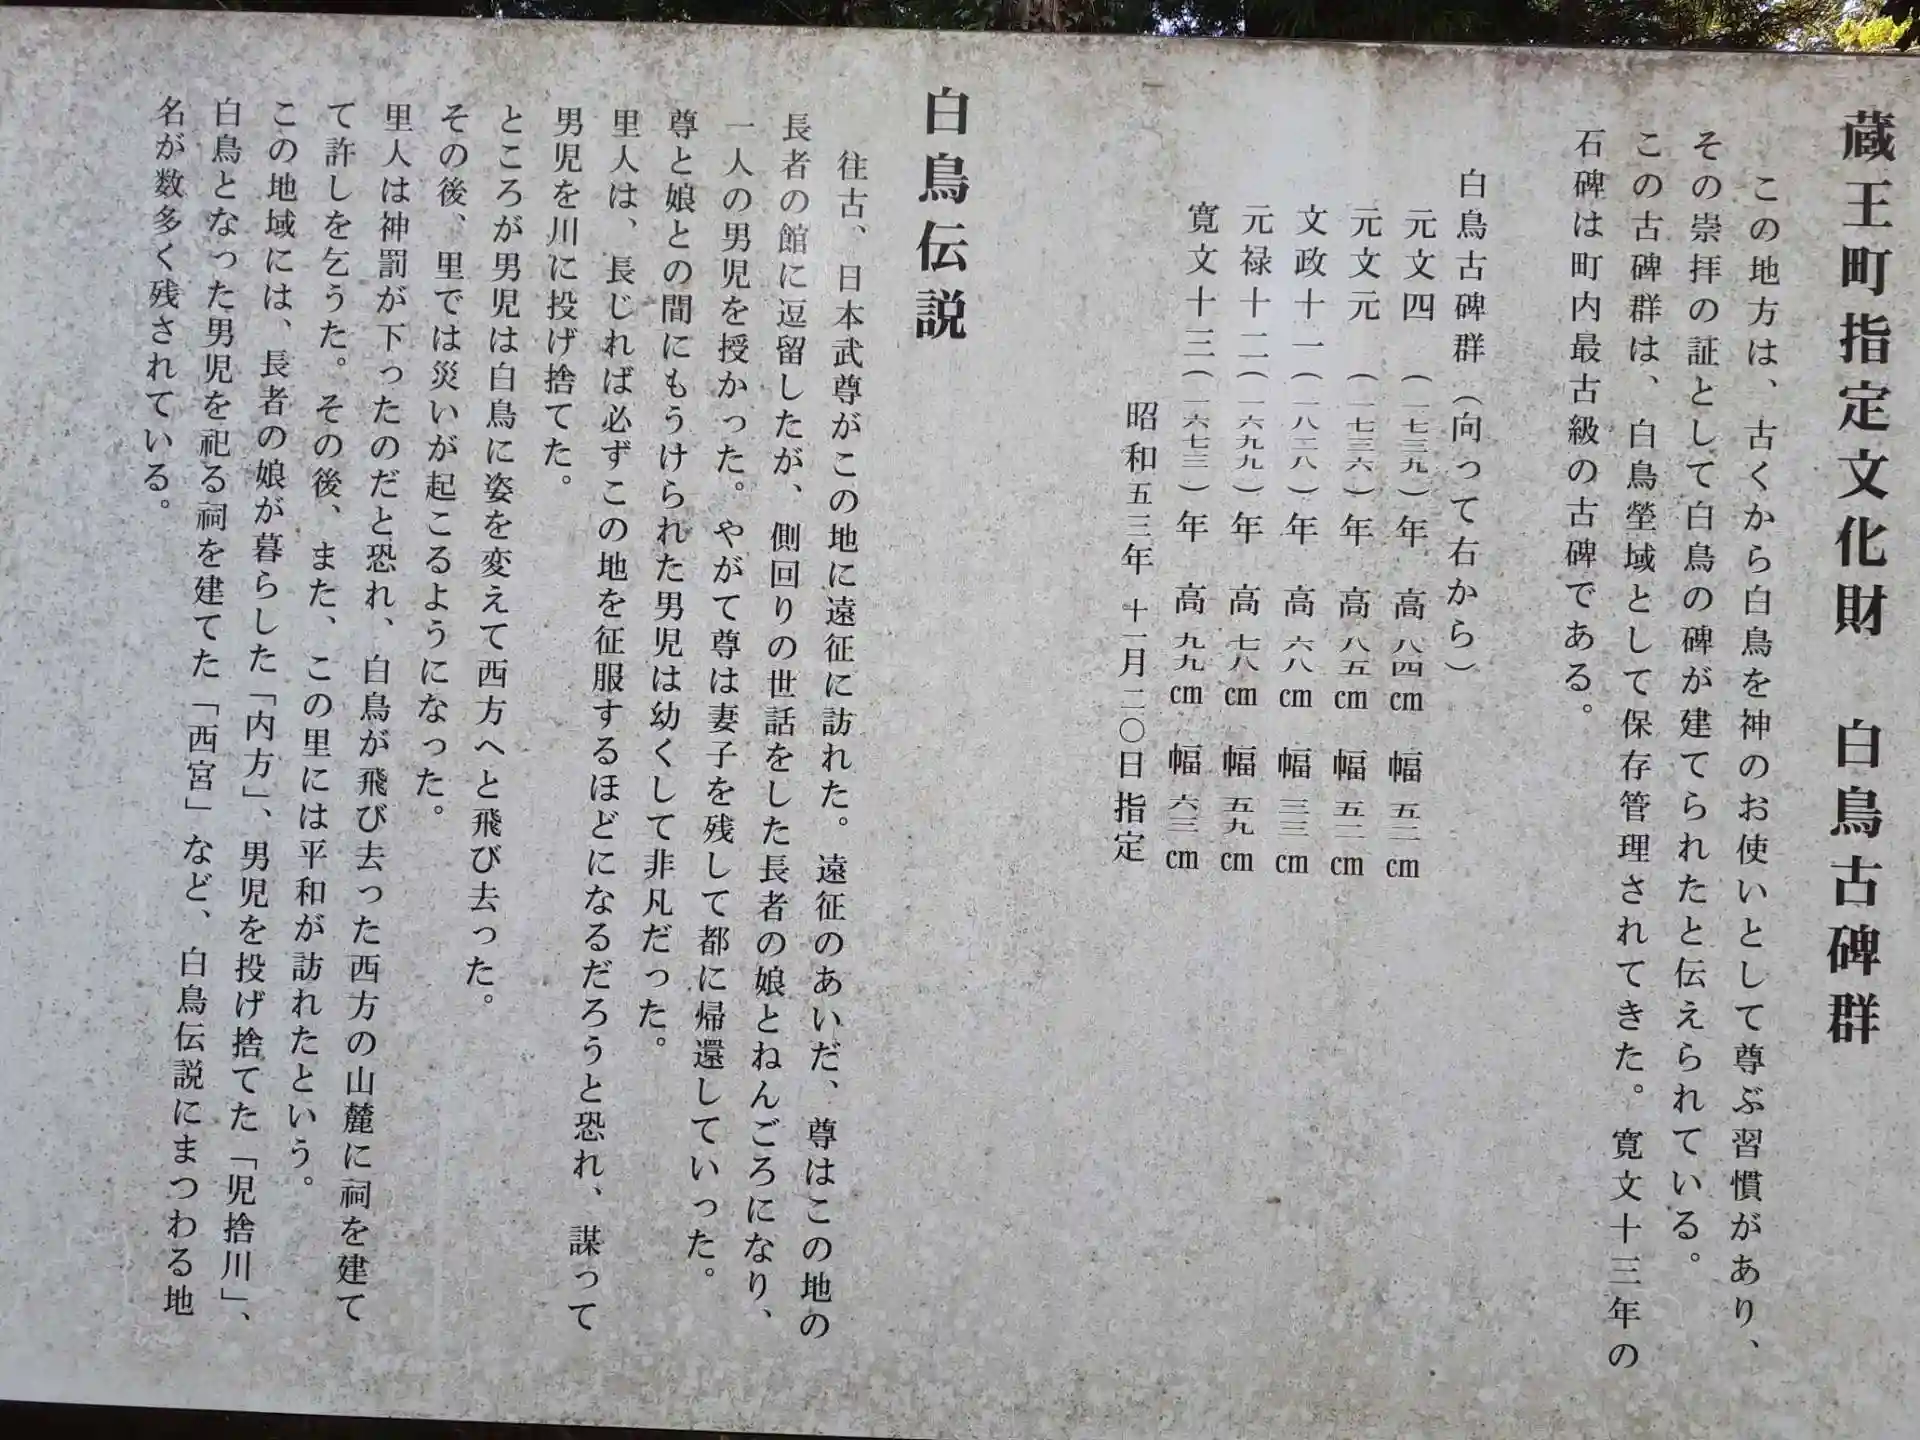 蔵王町指定文化財　白鳥古碑群
この地方は、古くから白鳥を神のお使いとして尊ぶ習慣があり、
その崇拝の証として白鳥の碑が建てられたと伝えられている。
この古碑群は、白鳥塋域として保存管理されてきた。寛文十三年の
石碑は町内最古級の古碑である。
白鳥古碑群（向って右から）
元文四（一七三九）年　高八四㎝　幅五二㎝
元文元（一七三六）年　高八五㎝　幅五二㎝
文政十一（一八二八）年　高六八㎝　幅三三㎝
元禄十二（一六九九）年　高七八㎝　幅五九㎝
寛文十三（一六七三）年　高九九㎝　幅六三㎝
昭和五三年十一月二〇日指定
白鳥伝説
往古、日本武尊がこの地に遠征に訪れた。遠征のあいだ、尊はこの地の
長者の館に逗留したが、側回りの世話をした長者の娘とねんごろになり、
一人の男児を授かった。やがて尊は妻子を残して都に帰還していった。
尊と娘との間にもうけられた男児は幼くして非凡だった。
里人は、長じれば必ずこの地を征服するほどになるだろうと恐れ、謀って
男児を川に投げ捨てた。
ところが男児は白鳥に姿を変えて西方へと飛び去った。
その後、里では災いが起こるようになった。
里人は神罰が下ったのだと恐れ、白鳥が飛び去った西方の山麓に祠を建て
て許しを乞うた。その後、また、この里には平和が訪れたという。
この地域には、長者の娘が暮らした「内方」、男児を投げ捨てた「児捨川」、
白鳥となった男児を祀る祠を建てた「西宮」など、白鳥伝説にまつわる地
名が数多く残されている。